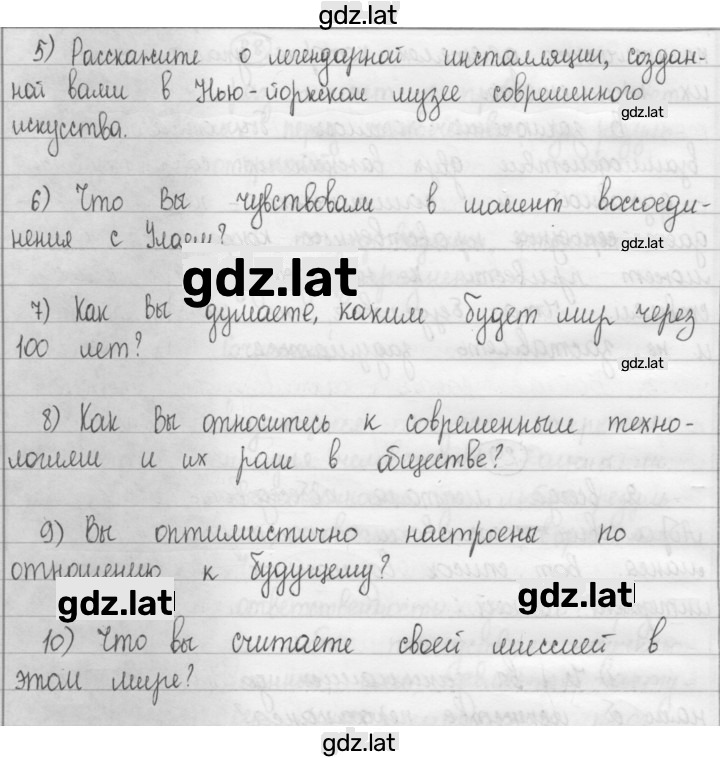 gdz.lat
5) Расскажите о легендарной инсталляции, создан-
ной вами в Нью-йоркском музее современного
gdz.lat
искусства.
6) Что Вы чувствовали в момент воссоеди-
нения с
gdz.lat
gdz.lat
7) Как Вы думаете, каким будет мир через
100 лет?
gdz.lat
8) Как Вы относитесь к современным техно-
логиям и их роли в обществе?
9) Вы оптимистично настроены по
отношению к будущему?
gdz.lat
gdz.lat
10) Что вы считаете своей миссией в
этом мире?
gdz.lat